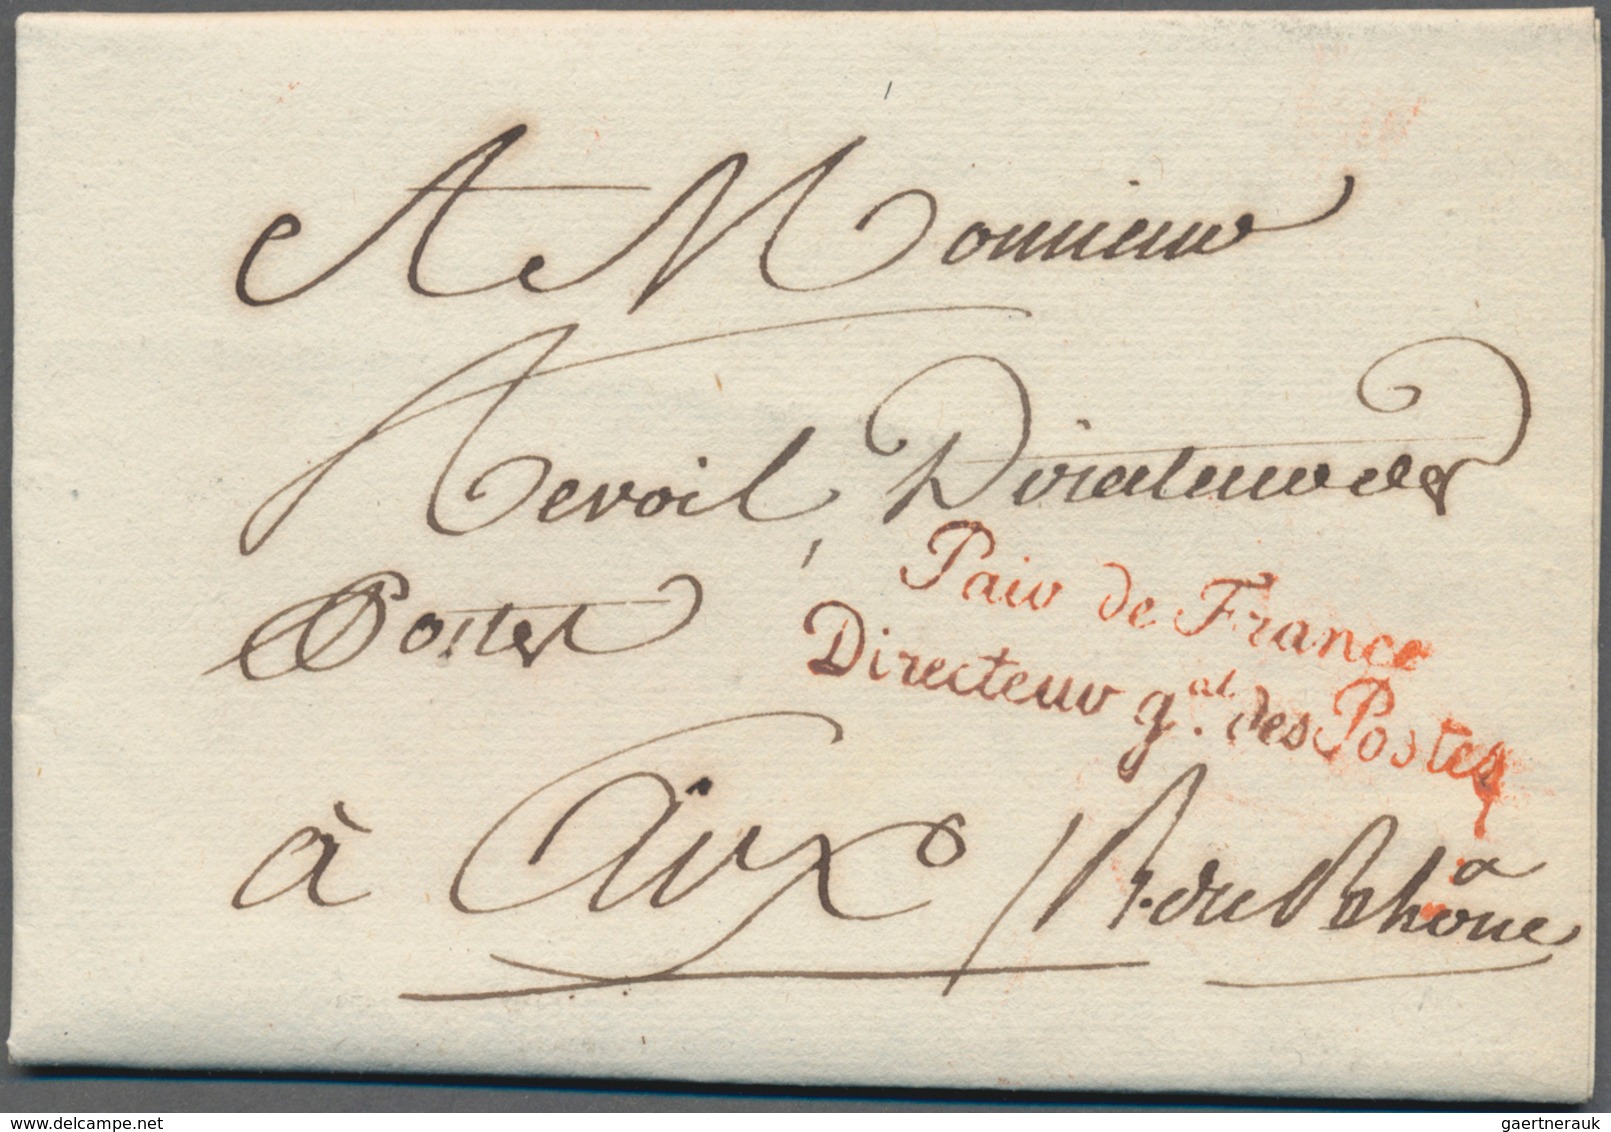 A Monsieur
Revoil, Directeur des
Postes
Pair de France
Directeur gal. des Postes
à Aix / B. du Rhône
gaertnerauk